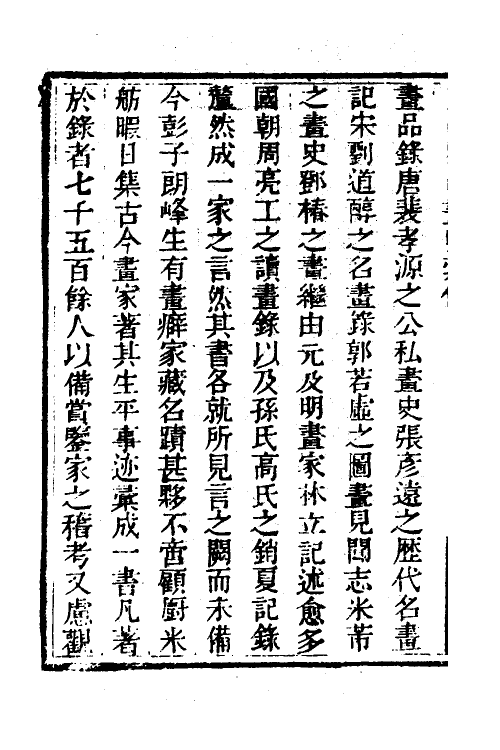 畫品錄唐裴孝源之公私畫史張彥遠之歷代名畫
記宋劉道醇之名畫錄郭若虛之圖畫見聞志米芾
之畫史鄧椿之畫繼由元及明畫家林立記述愈多
國朝周亮工之讀畫錄以及孫氏高氏之銷夏記錄
釐然成一家之言然其書各就所見言之闕而未備
今彭子朗峰生有畫癖家藏名蹟甚夥不啻顧廚米
舫暇日集古今畫家著其生平事迹彙成一書凡著
於錄者七千五百餘人以備賞鑒家之稽考又慮觀